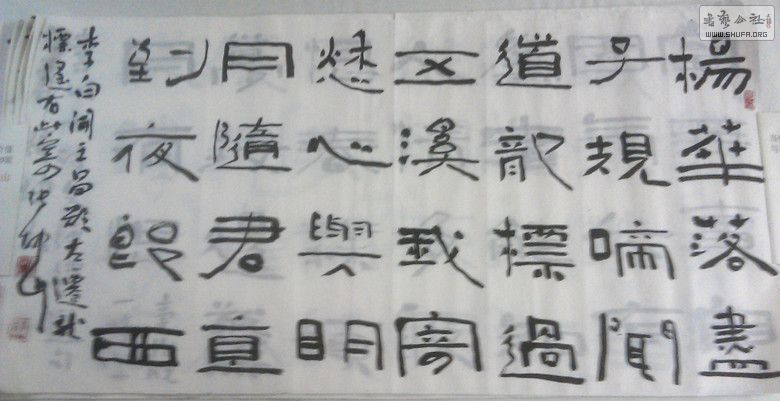 楊華落盡
子規啼聞
道龍標過
五溪我寄
愁心與明
月隨君直
到夜郎西
李白聞王昌齡左遷龍
標遙有此寄
書藝公社
WWW.SHUFA.ORG